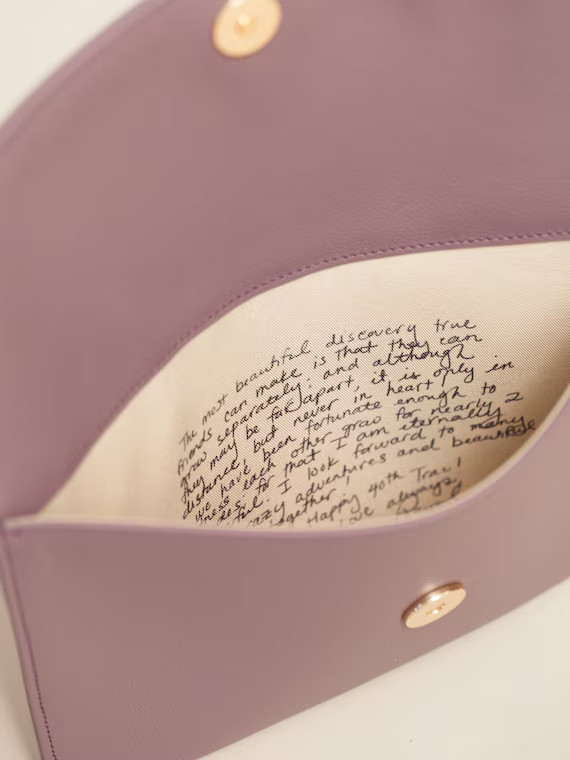 The most beautiful discovery true
friends can make is that they can
grow separately; and although
they may be far apart, it is only in
distance, but never in heart.
We have been fortunate enough to
ness each other grow for nearly 2
des, for that I am eternally
ful. I look forward to many
azy adventures and beautiful
together!
Happy 40th Trac!
ove always,